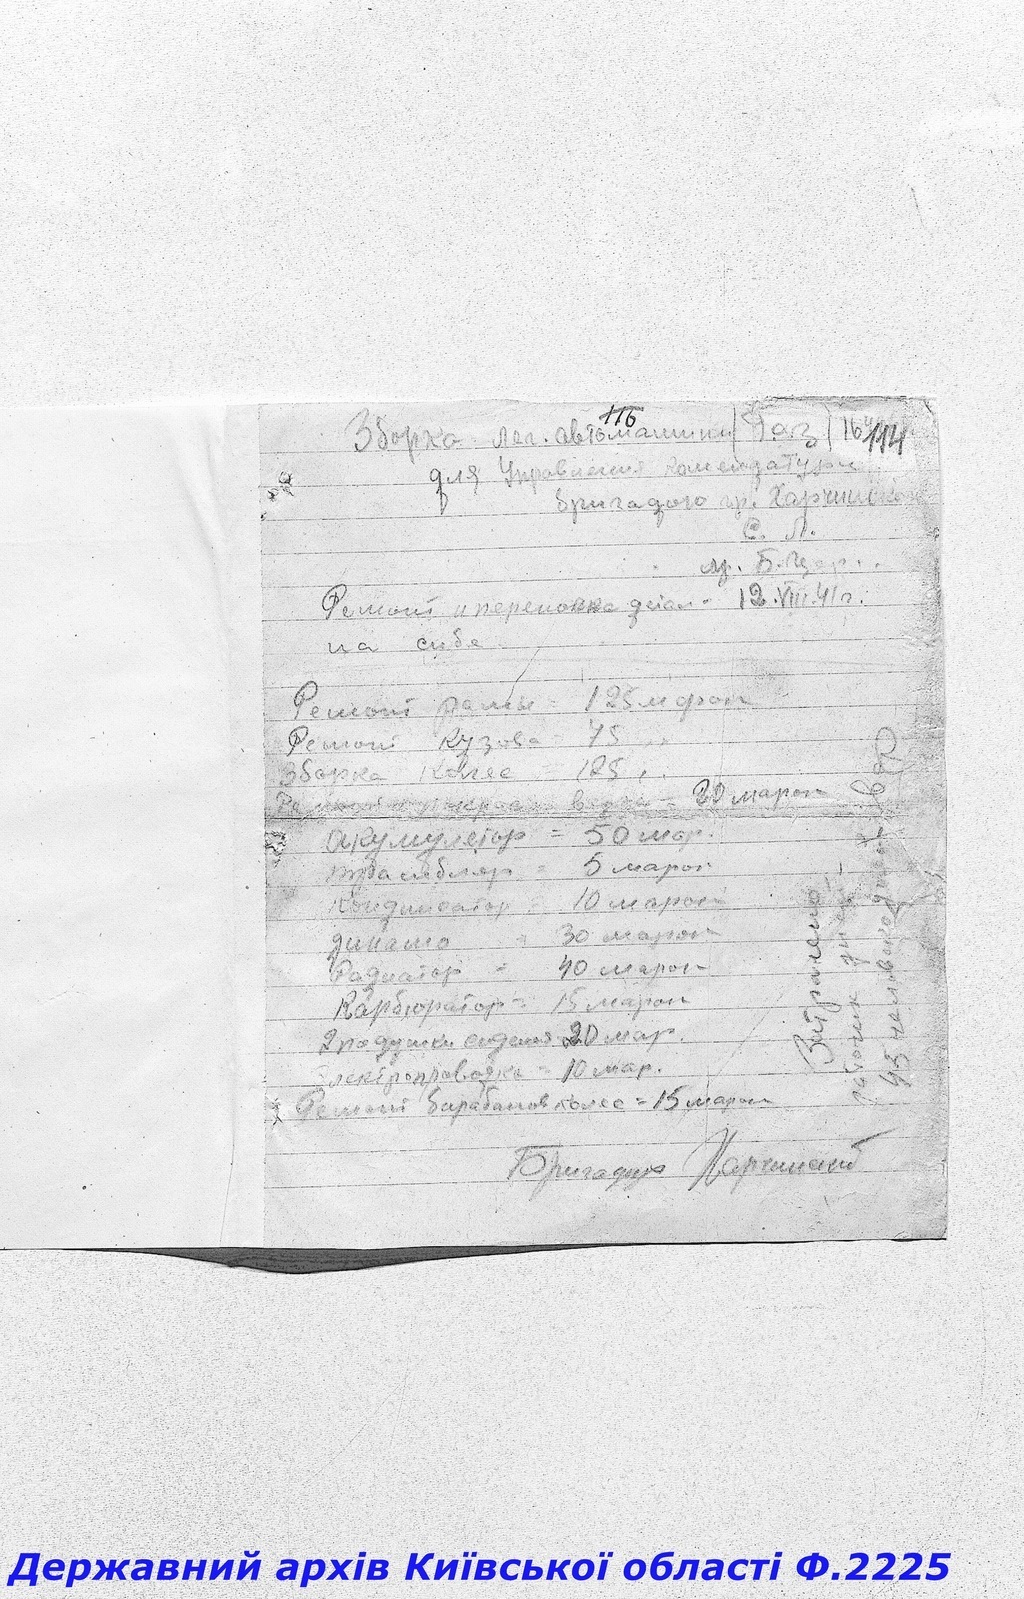 116
Зборка лег. автомашини (Газ) 114
для Управления комендатури
бригадого гр. Харчинско
С. Л.
м. Б. Цер.
Ремонт и детал. 12.VIII.41г.
на себе
Ремонт рамы = 125 марок
Ремонт кузова = 75 "
Зборка колес = 125 "
= 20 марок
Акумулятор = 50 мар.
трамблер = 5 марок
Кондинсатор = 10 марок
динамо = 30 марок
Радиатор = 40 марок
Карбюратор = 15 марок
2 подушки сидения 20 мар.
Електропроводка = 10 мар.
Ремонт барабанов колес = 15 марок
Бригадир Харчинский
Витрачено
рабочих
45
Державний архів Київської області Ф.2225